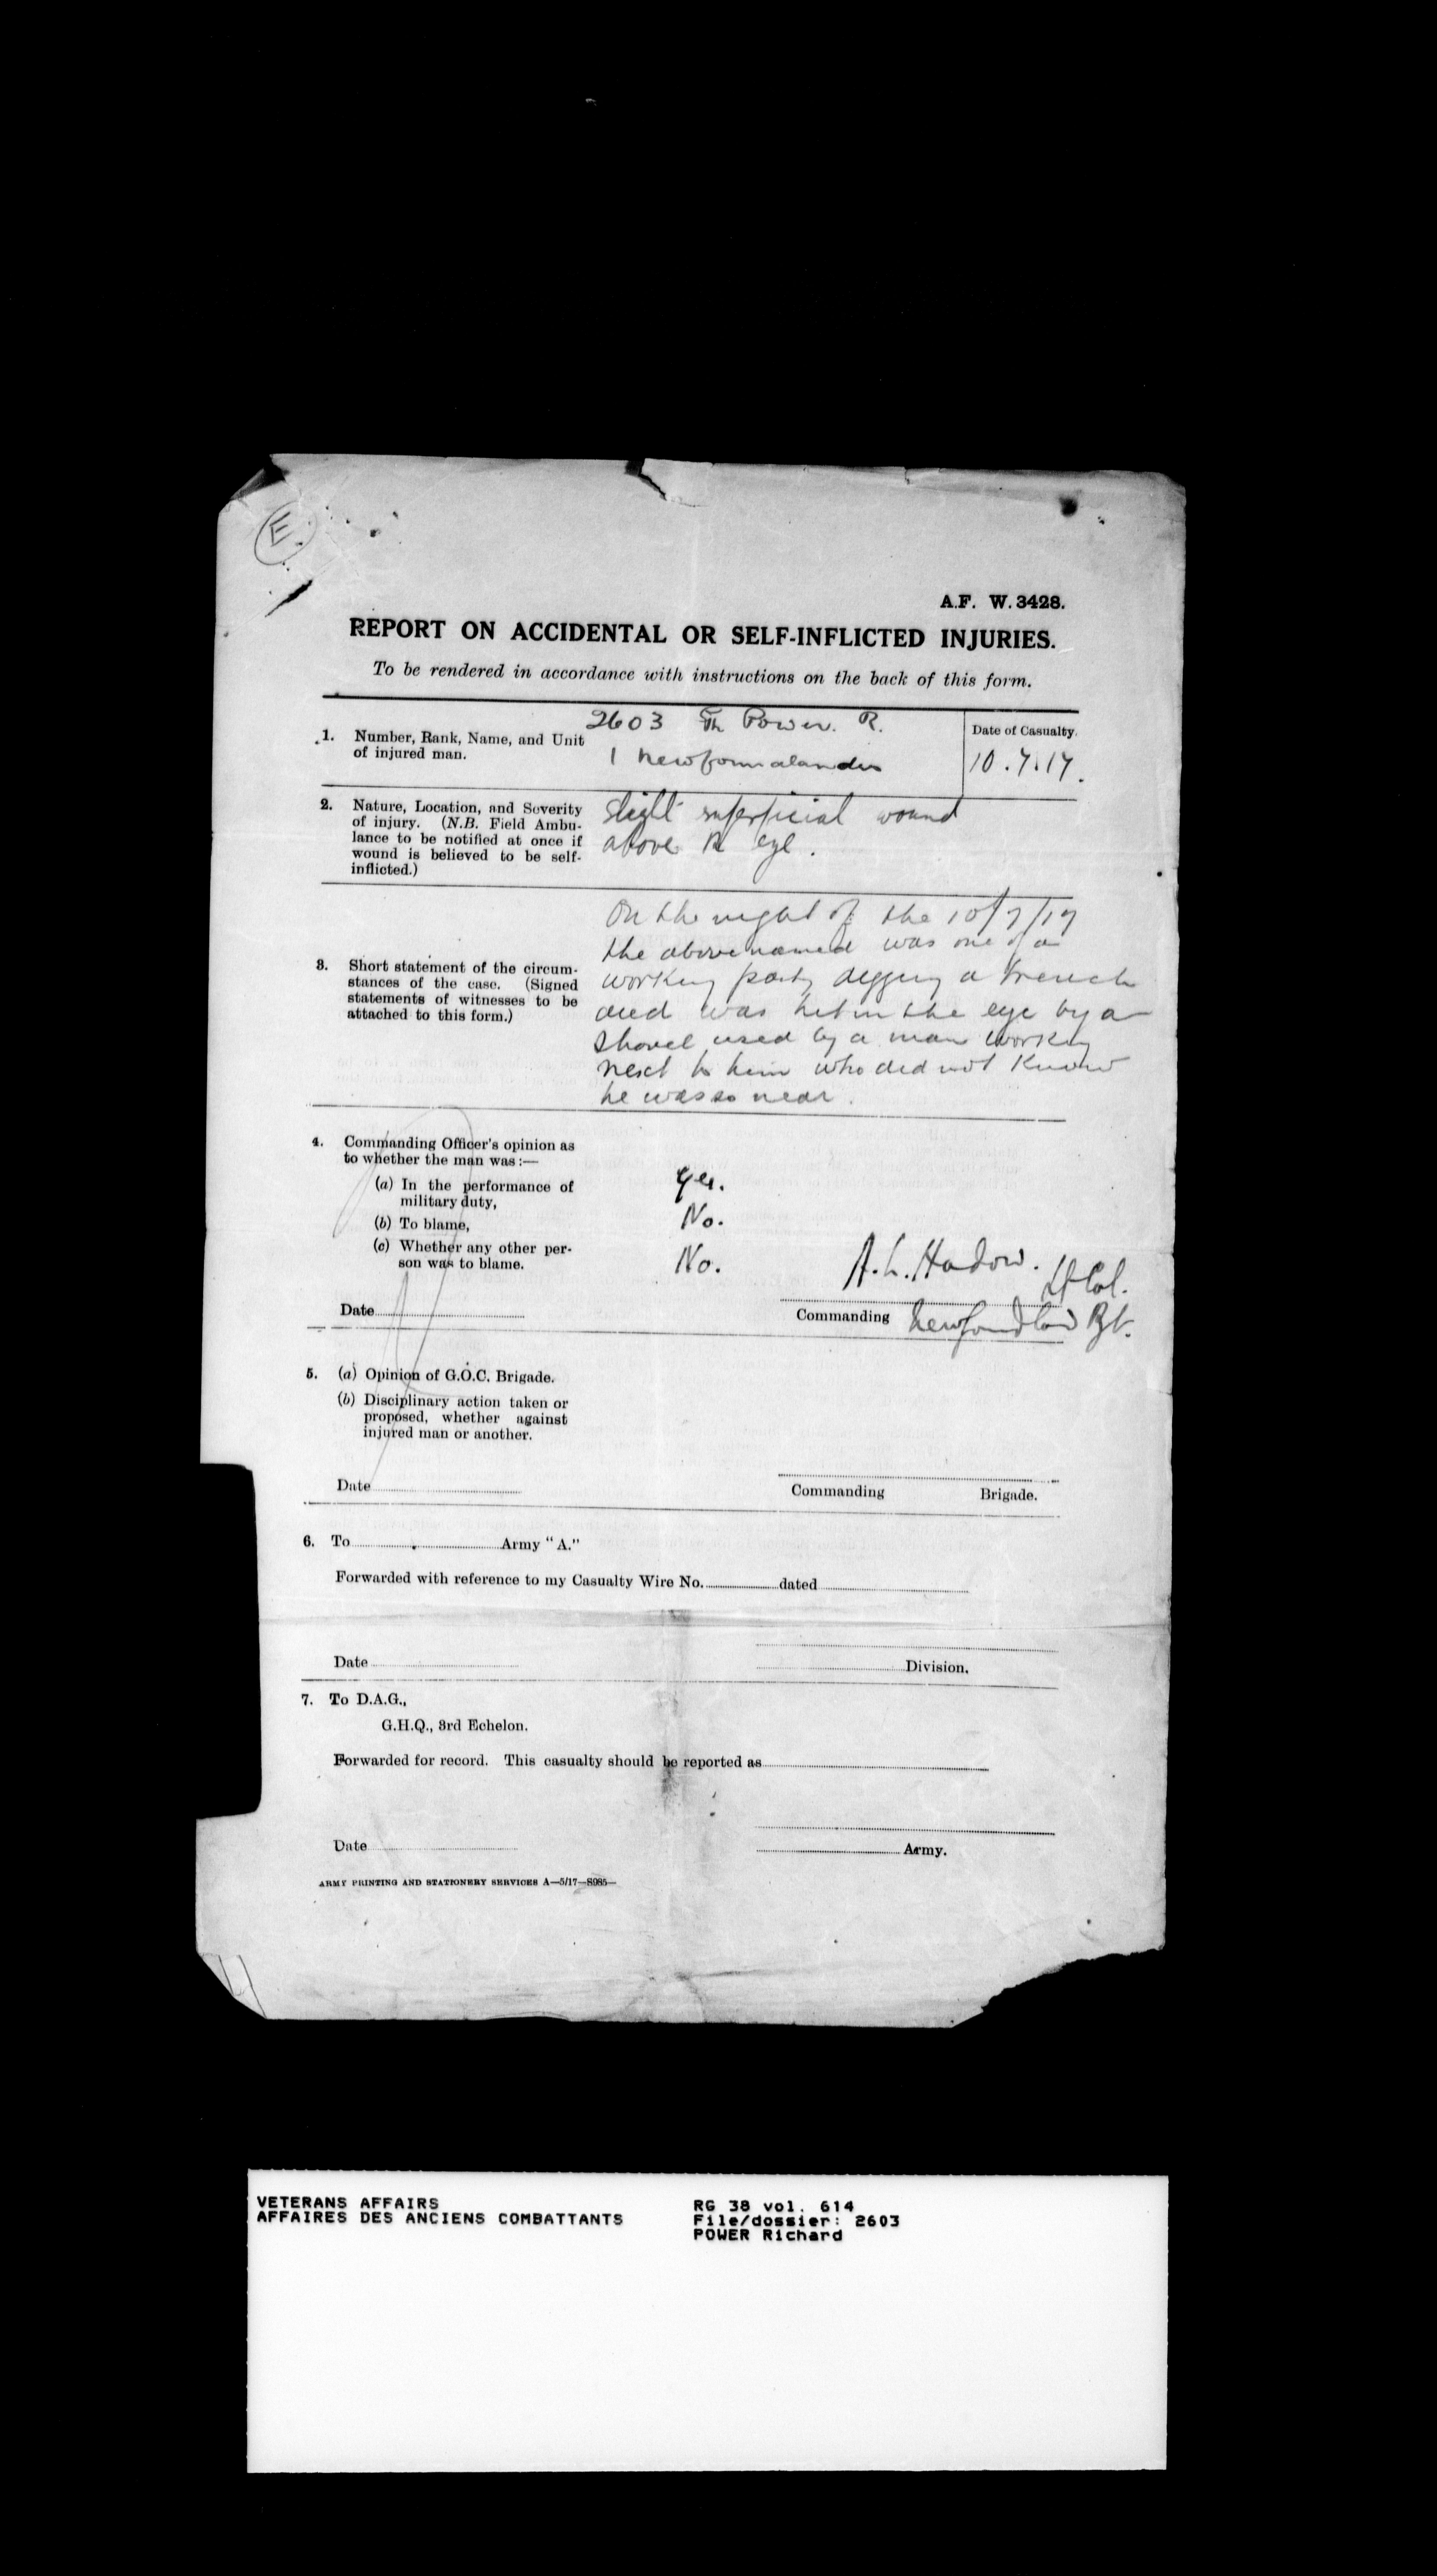 E
A.F. W. 3428.
REPORT ON ACCIDENTAL OR SELF-INFLICTED INJURIES.
To be rendered in accordance with instructions on the back of this form.
1. Number, Rank, Name, and Unit
of injured man.
2603 Power. R.
1 Newfoundlanders
Date of Casualty.
10.7.17.
2. Nature, Location, and Severity
of injury. (N.B. Field Ambu-
lance to be notified at once if
wound is believed to be self-
inflicted.)
Slight superficial wound
above R eye.
3. Short statement of the circum-
stances of the case. (Signed
statements of witnesses to be
attached to this form.)
On the night of the 10/7/17
the above named was one of a
working party digging a trench
and was hit in the eye by a
shovel used by a man working
next to him who did not know
he was so near.
4. Commanding Officer's opinion as
to whether the man was:—
(a) In the performance of
military duty,
Yes.
(b) To blame,
No.
(c) Whether any other per-
son was to blame.
No.
A. L. Hadow. Lt Col.
Date
Commanding Newfoundland Rgt.
5. (a) Opinion of G.O.C. Brigade.
(b) Disciplinary action taken or
proposed, whether against
injured man or another.
Date
Commanding Brigade.
6. To Army "A."
Forwarded with reference to my Casualty Wire No. dated
Date
Division.
7. To D.A.G.,
G.H.Q., 3rd Echelon.
Forwarded for record. This casualty should be reported as
Date
Army.
ARMY PRINTING AND STATIONERY SERVICES A—5/17—S985—
VETERANS AFFAIRS
AFFAIRES DES ANCIENS COMBATTANTS
RG 38 vol. 614
File/dossier: 2603
POWER Richard